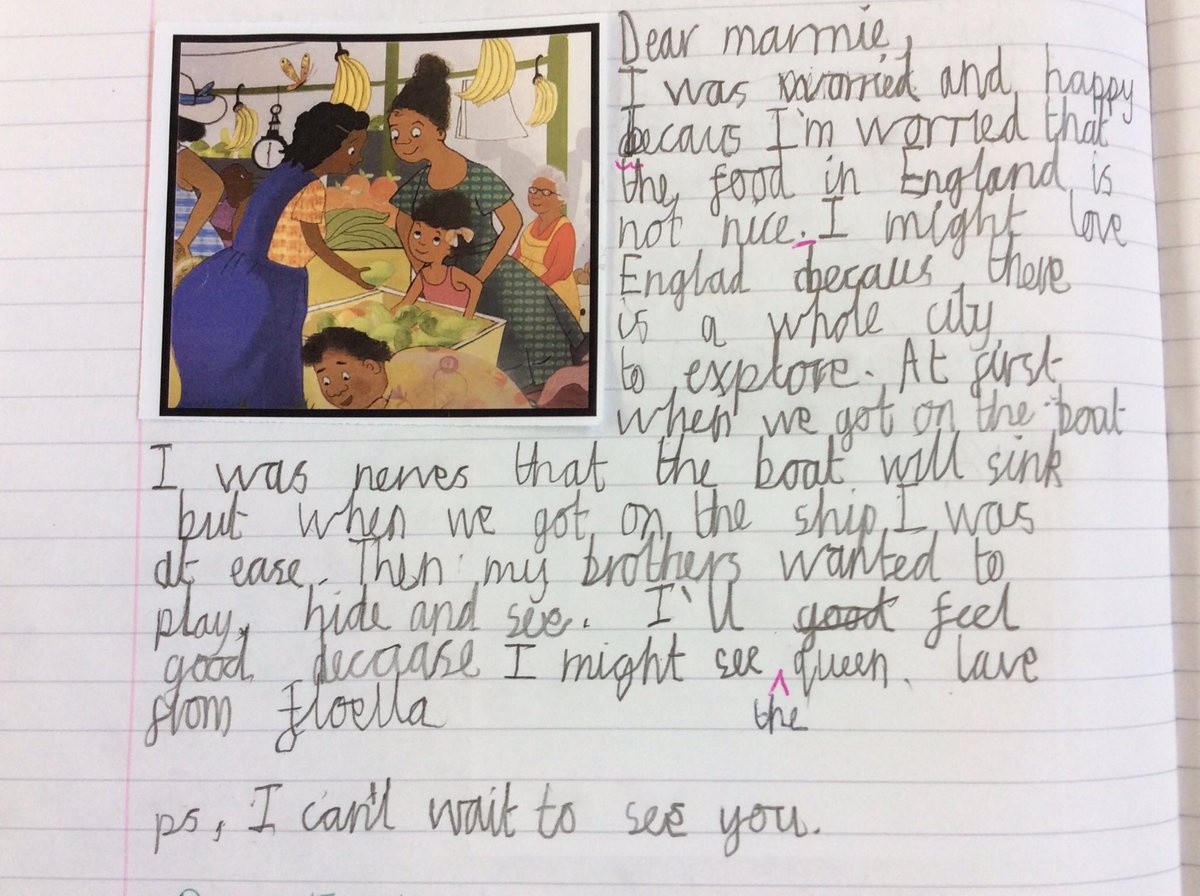 Dear marmie,
I was worried and happy
becaus I'm worried that
the food in England is
not nice. I might love
Englad becaus there
is a whole city
to explore. At first
when we got on the boat
I was nerves that the boat will sink
but when we got on the ship I was
at ease. Then my brothers wanted to
play, hide and see. I'll good feel
good decaase I might see the queen. lave
from Floella
ps, I can't wait to see you.